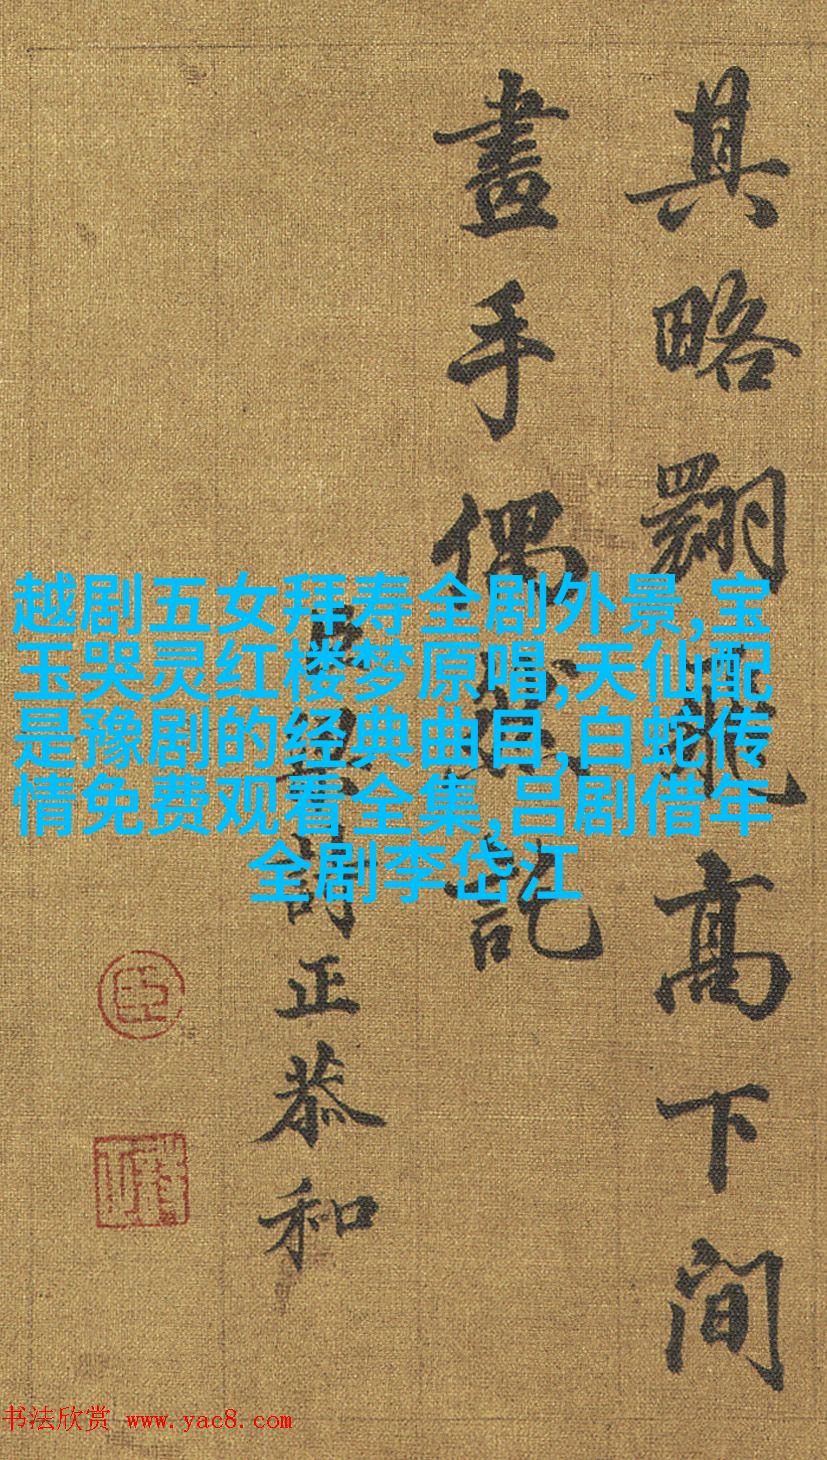 其略翾飛高下間
畫手偶然
臣梁詩正恭和
臣
越剧五女拜寿全剧外景,宝
玉哭灵红楼梦原唱,天仙配
是豫剧的经典曲目,白蛇传
情免费观看全集,吕剧借年
全剧李岱江
书法欣赏 www.yac8.com